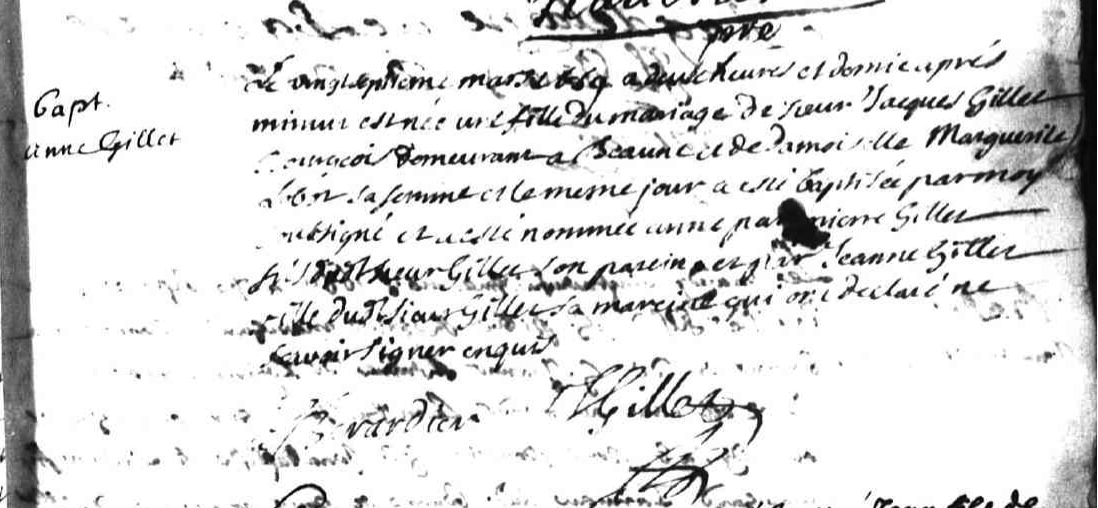 pre
Bapt.
anne Gillet
Le vingtseptieme mars 1689 a deux heures et demie aprés
minuit est née une fille du mariage de sieur Jacques Gillet
bourgeois demeurant a Beaune et de Damoiselle Marguerite
sa femme et le meme jour a esté baptisée par moy
soubsigné et a esté nommée anne par pierre Gillet
fils dudt sieur Gillet son parein et par Jeanne Gillet
fille dudt sieur Gillet sa mareine qui ont declaré ne
scavoir signer enquis
Gillet
Jean fils de